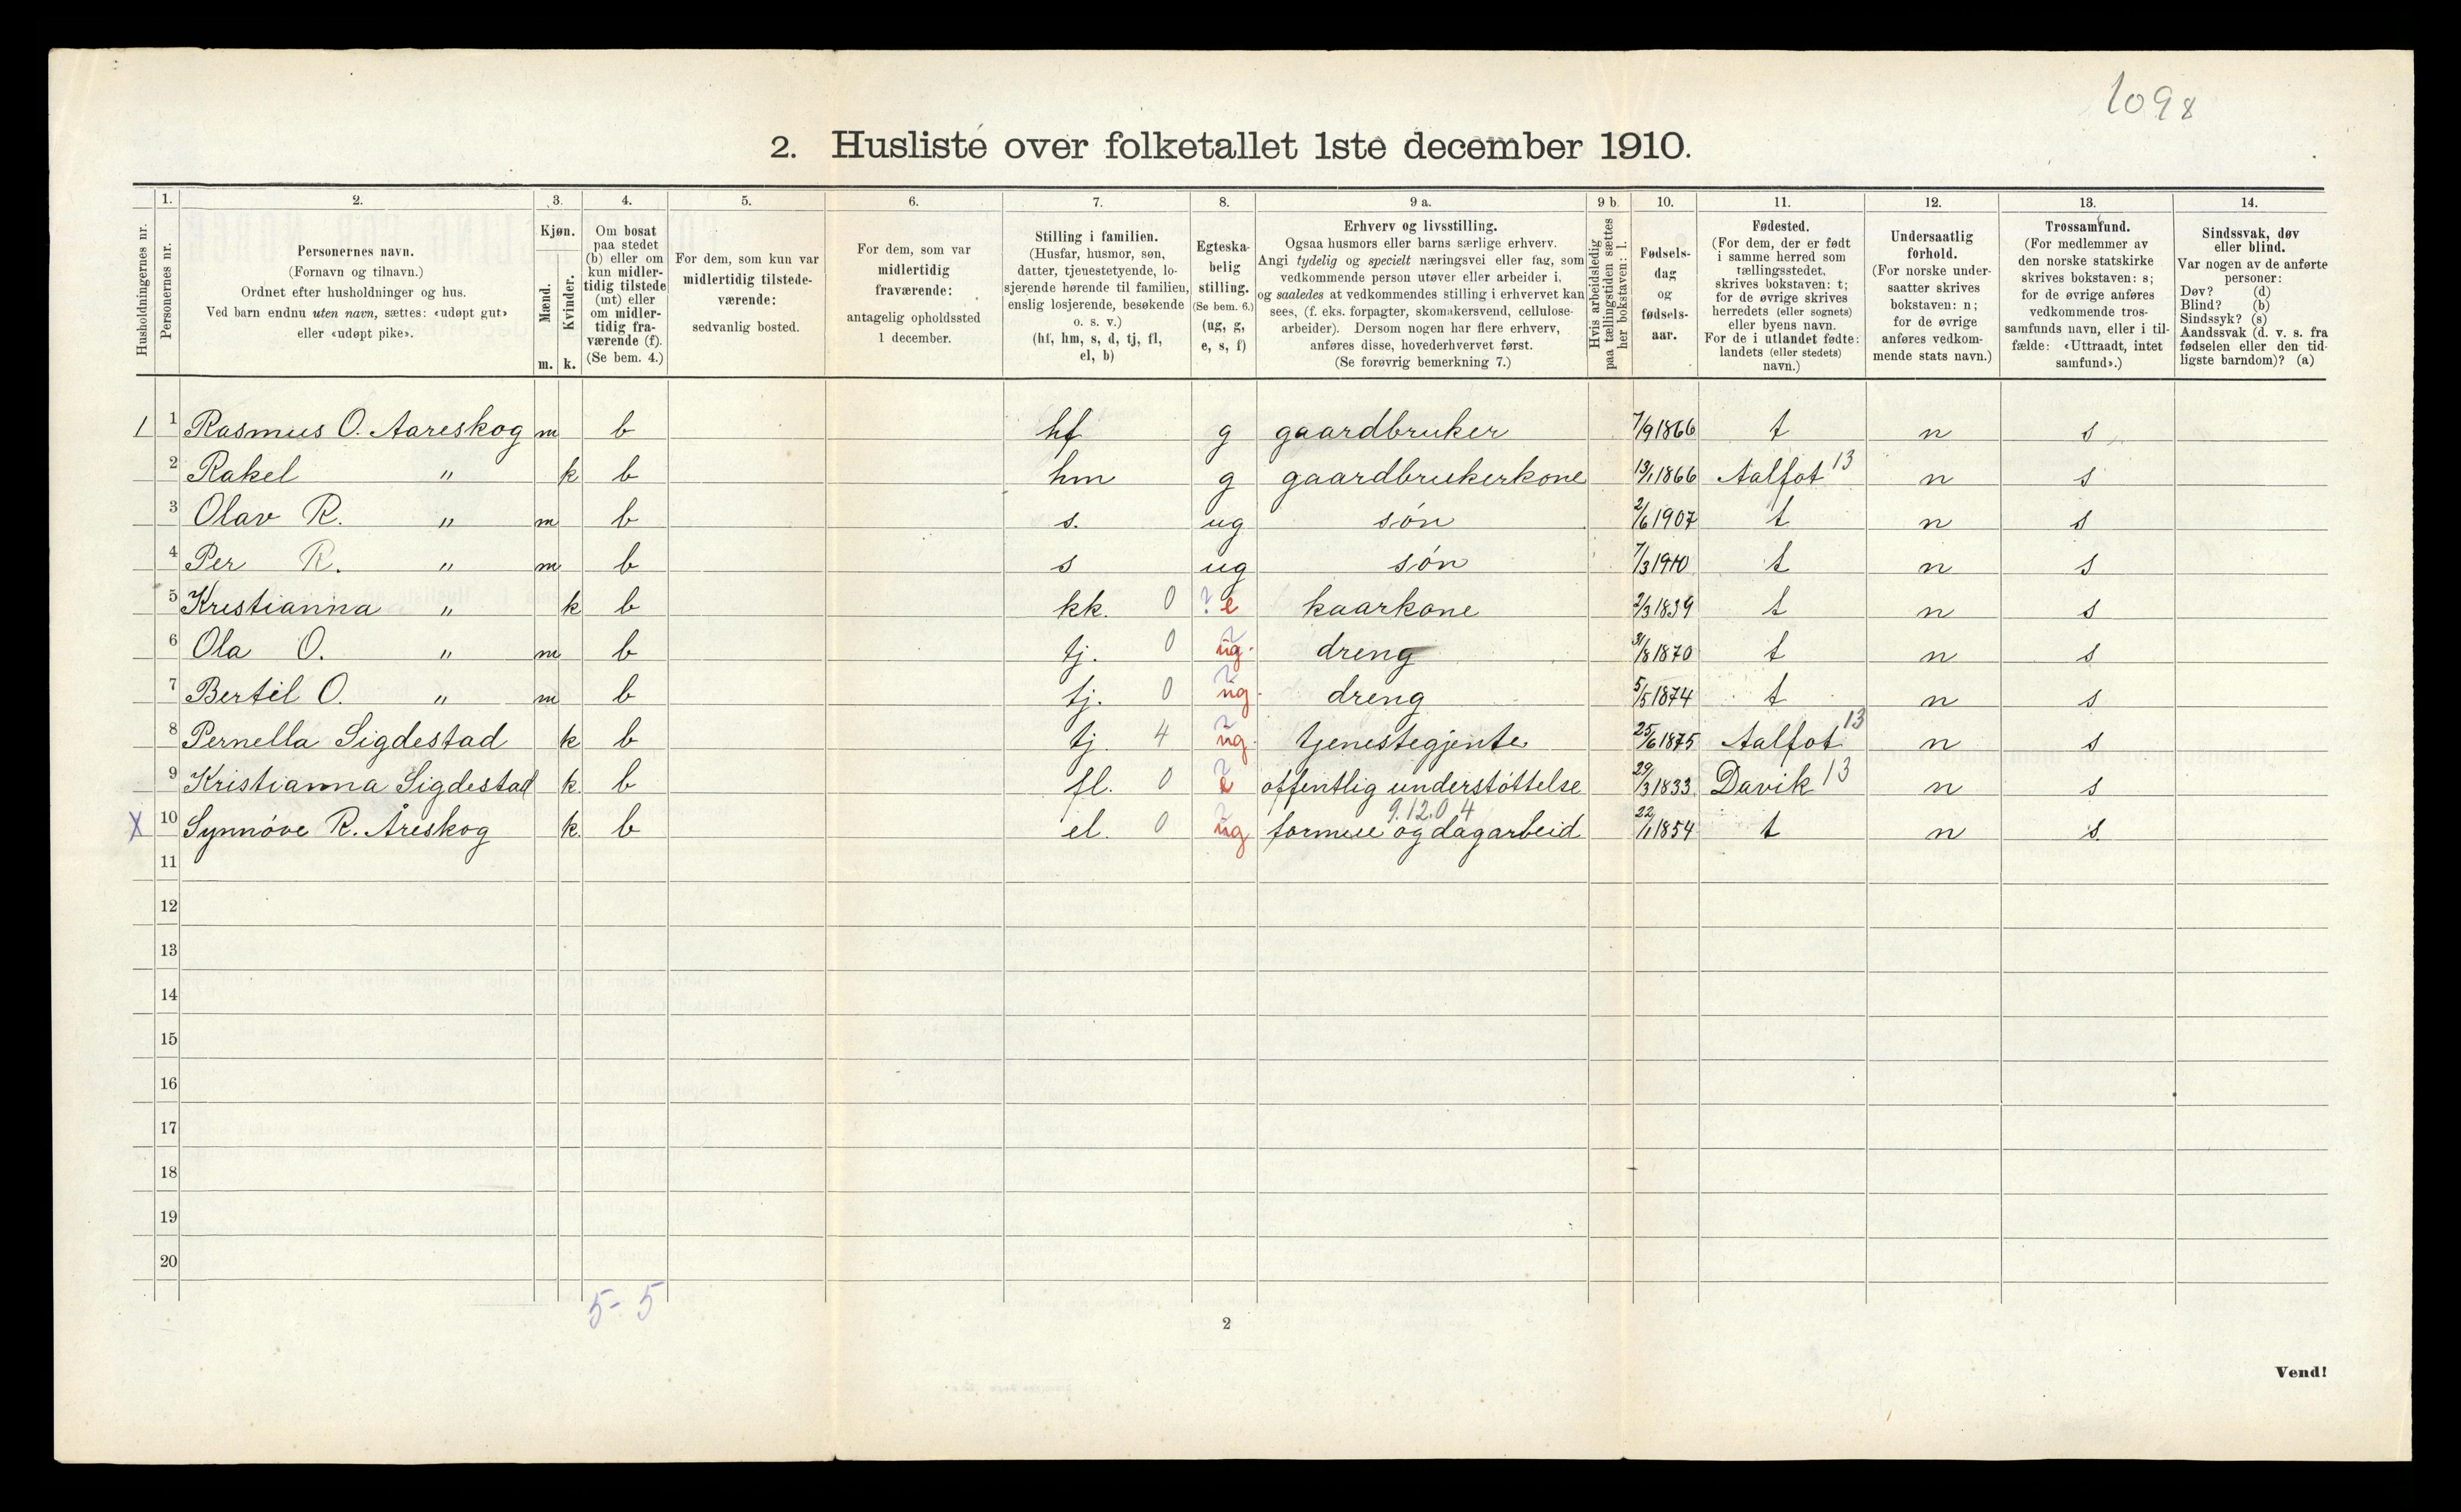 1098
2. Husliste over folketallet 1ste december 1910.
Husholdningernes nr.
1.
Personernes nr.
2.
Personernes navn.
(Fornavn og tilnavn.)
Ordnet efter husholdninger og hus.
Ved barn endnu uten navn, sættes: «udøpt gut»
eller «udøpt pike».
3.
Kjøn.
Mænd.
Kvinder.
m. k.
4.
Om bosat
paa stedet
(b) eller om
kun midler-
tidig tilstede
(mt) eller
om midler-
tidig fra-
værende (f).
(Se bem. 4.)
5.
For dem, som kun var
midlertidig tilstede-
værende:
sedvanlig bosted.
6.
For dem, som var
midlertidig
fraværende:
antagelig opholdssted
1 december.
7.
Stilling i familien.
(Husfar, husmor, søn,
datter, tjenestetyende, lo-
sjerende hørende til familien,
enslig losjerende, besøkende
o. s. v.)
(hf, hm, s, d, tj, fl,
el, b)
8.
Egteska-
belig
stilling.
(Se bem. 6.)
(ug, g,
e, s, f)
9 a.
Erhverv og livsstilling.
Ogsaa husmors eller barns særlige erhverv.
Angi tydelig og specielt næringsvei eller fag, som
vedkommende person utøver eller arbeider i,
og saaledes at vedkommendes stilling i erhvervet kan
sees, (f. eks. forpagter, skomakersvend, cellulose-
arbeider). Dersom nogen har flere erhverv,
anføres disse, hovederhvervet først.
(Se forøvrig bemerkning 7.)
9 b.
Hvis arbeidsledig
paa tællingstiden sættes
her bokstaven: l.
10.
Fødsels-
dag
og
fødsels-
aar.
11.
Fødested.
(For dem, der er født
i samme herred som
tællingsstedet,
skrives bokstaven: t;
for de øvrige skrives
herredets (eller sognets)
eller byens navn.
For de i utlandet fødte:
landets (eller stedets)
navn.)
12.
Undersaatlig
forhold.
(For norske under-
saatter skrives
bokstaven: n;
for de øvrige
anføres vedkom-
mende stats navn.)
13.
Trossamfund.
(For medlemmer av
den norske statskirke
skrives bokstaven: s;
for de øvrige anføres
vedkommende tros-
samfunds navn, eller i til-
fælde: «Uttraadt, intet
samfund».)
14.
Sindssvak, døv
eller blind.
Var nogen av de anførte
personer:
Døv? (d)
Blind? (b)
Sindssyk? (s)
Aandssvak (d. v. s. fra
fødselen eller den tid-
ligste barndom)? (a)
1 1 Rasmus O. Aareskog m b hf g gaardbruker 7/9 1866 t n s
2 Rakel " k b hm g gaardbrukerkone 13/1 1866 Aalfot 13 n s
3 Olav R. " m b s. ug søn 2/6 1907 t n s
4 Per R. " m b s ug søn 7/3 1910 t n s
5 Kristianna " k b kk. 0 ? e kaarkone 2/3 1839 t n s
6 Ola O. " m b tj. 0 ug. dreng 31/8 1870 t n s
7 Bertil O. " m b tj. 0 ug. dreng 5/5 1874 t n s
8 Pernella Sigdestad k b tj. 4 ug. tjenestegjente 25/6 1875 Aalfot 13 n s
9 Kristianna Sigdestad k. b fl. 0 e offentlig understøttelse 29/3 1833 Davik 13 n s
9.12.04
X 10 Synnøve R. Åreskog k. b el. 0 ug formue og dagarbeid 22/1 1854 t n s.
11
12
13
14
15
16
17
18
19
20
5-5
2
Vend!